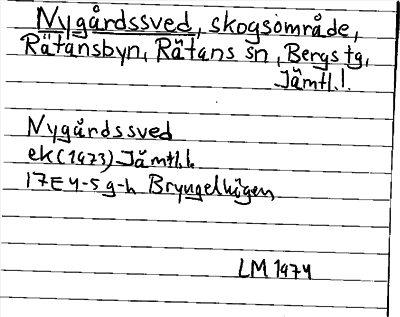 Nygårdssved, skogsområde,
Rätansbyn, Rätans sn, Bergs tg,
Jämtl. l.
Nygårdssved
ek (1973) Jämtl. l.
17E 4-5 g-h Bryngelhögen
LM 1974